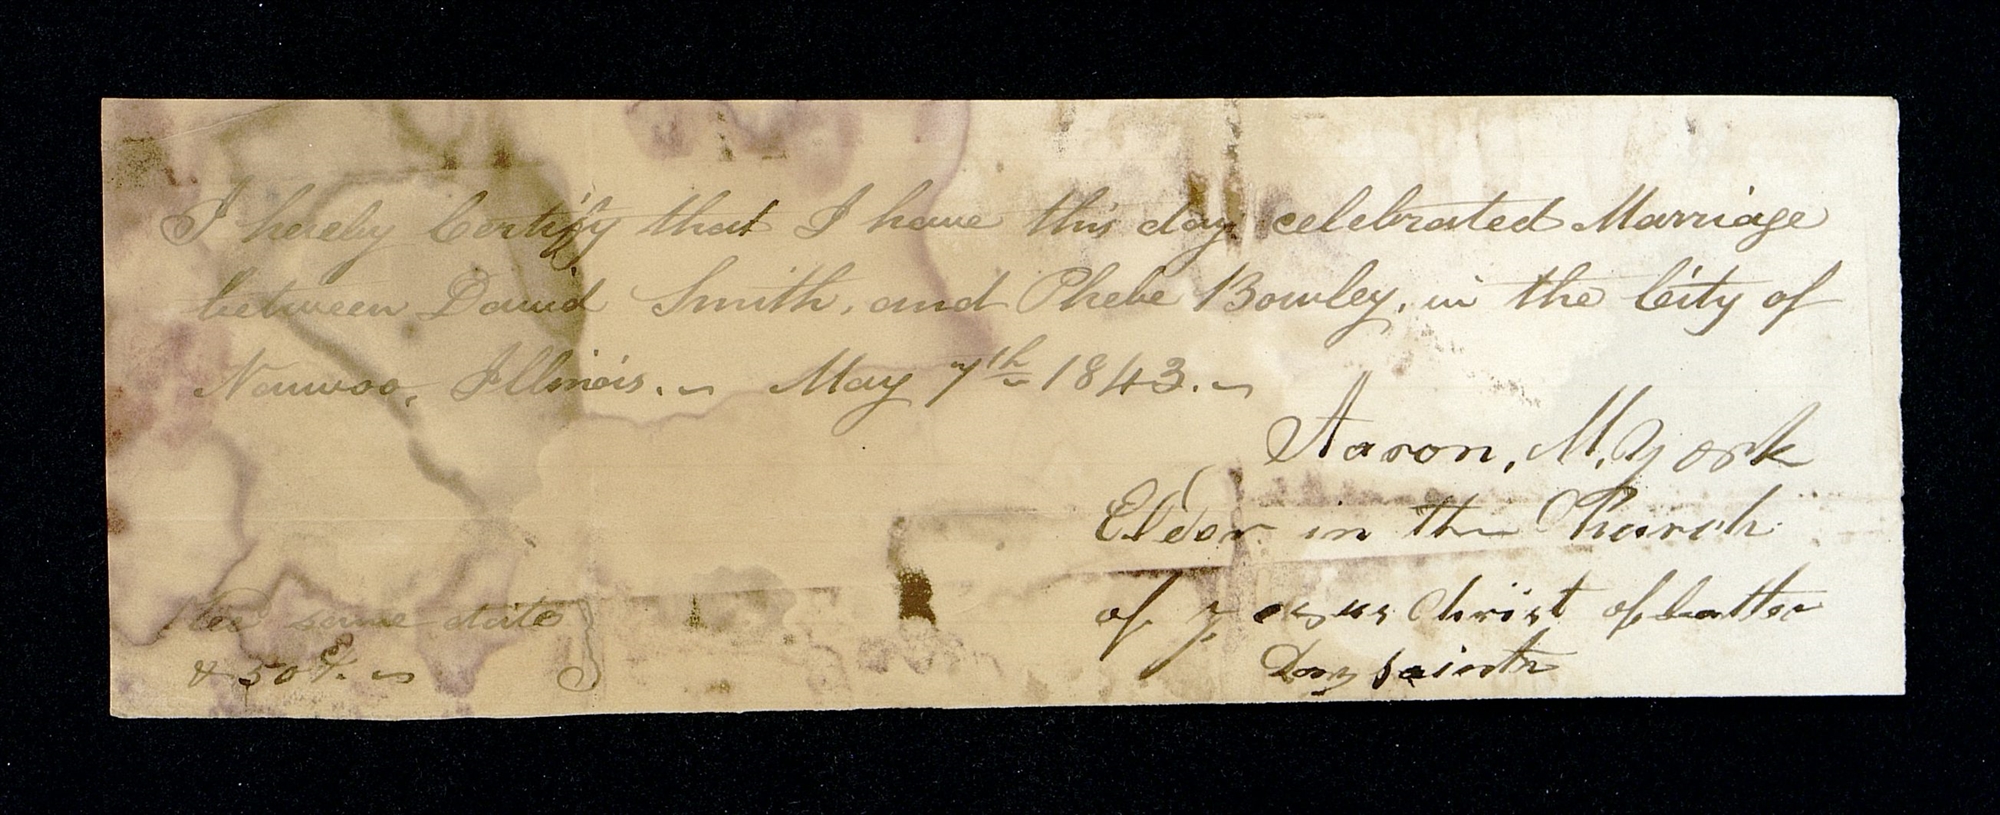 I hereby Certify that I have this day celebrated Marriage
between David Smith, and Phebe Bowley, in the City of
Nauvoo, Illinois. ~ May 7th 1843. ~
Aaron, M, York
Elder in the Church
of Jesus Christ of Latter
Day saints
same date
& 50